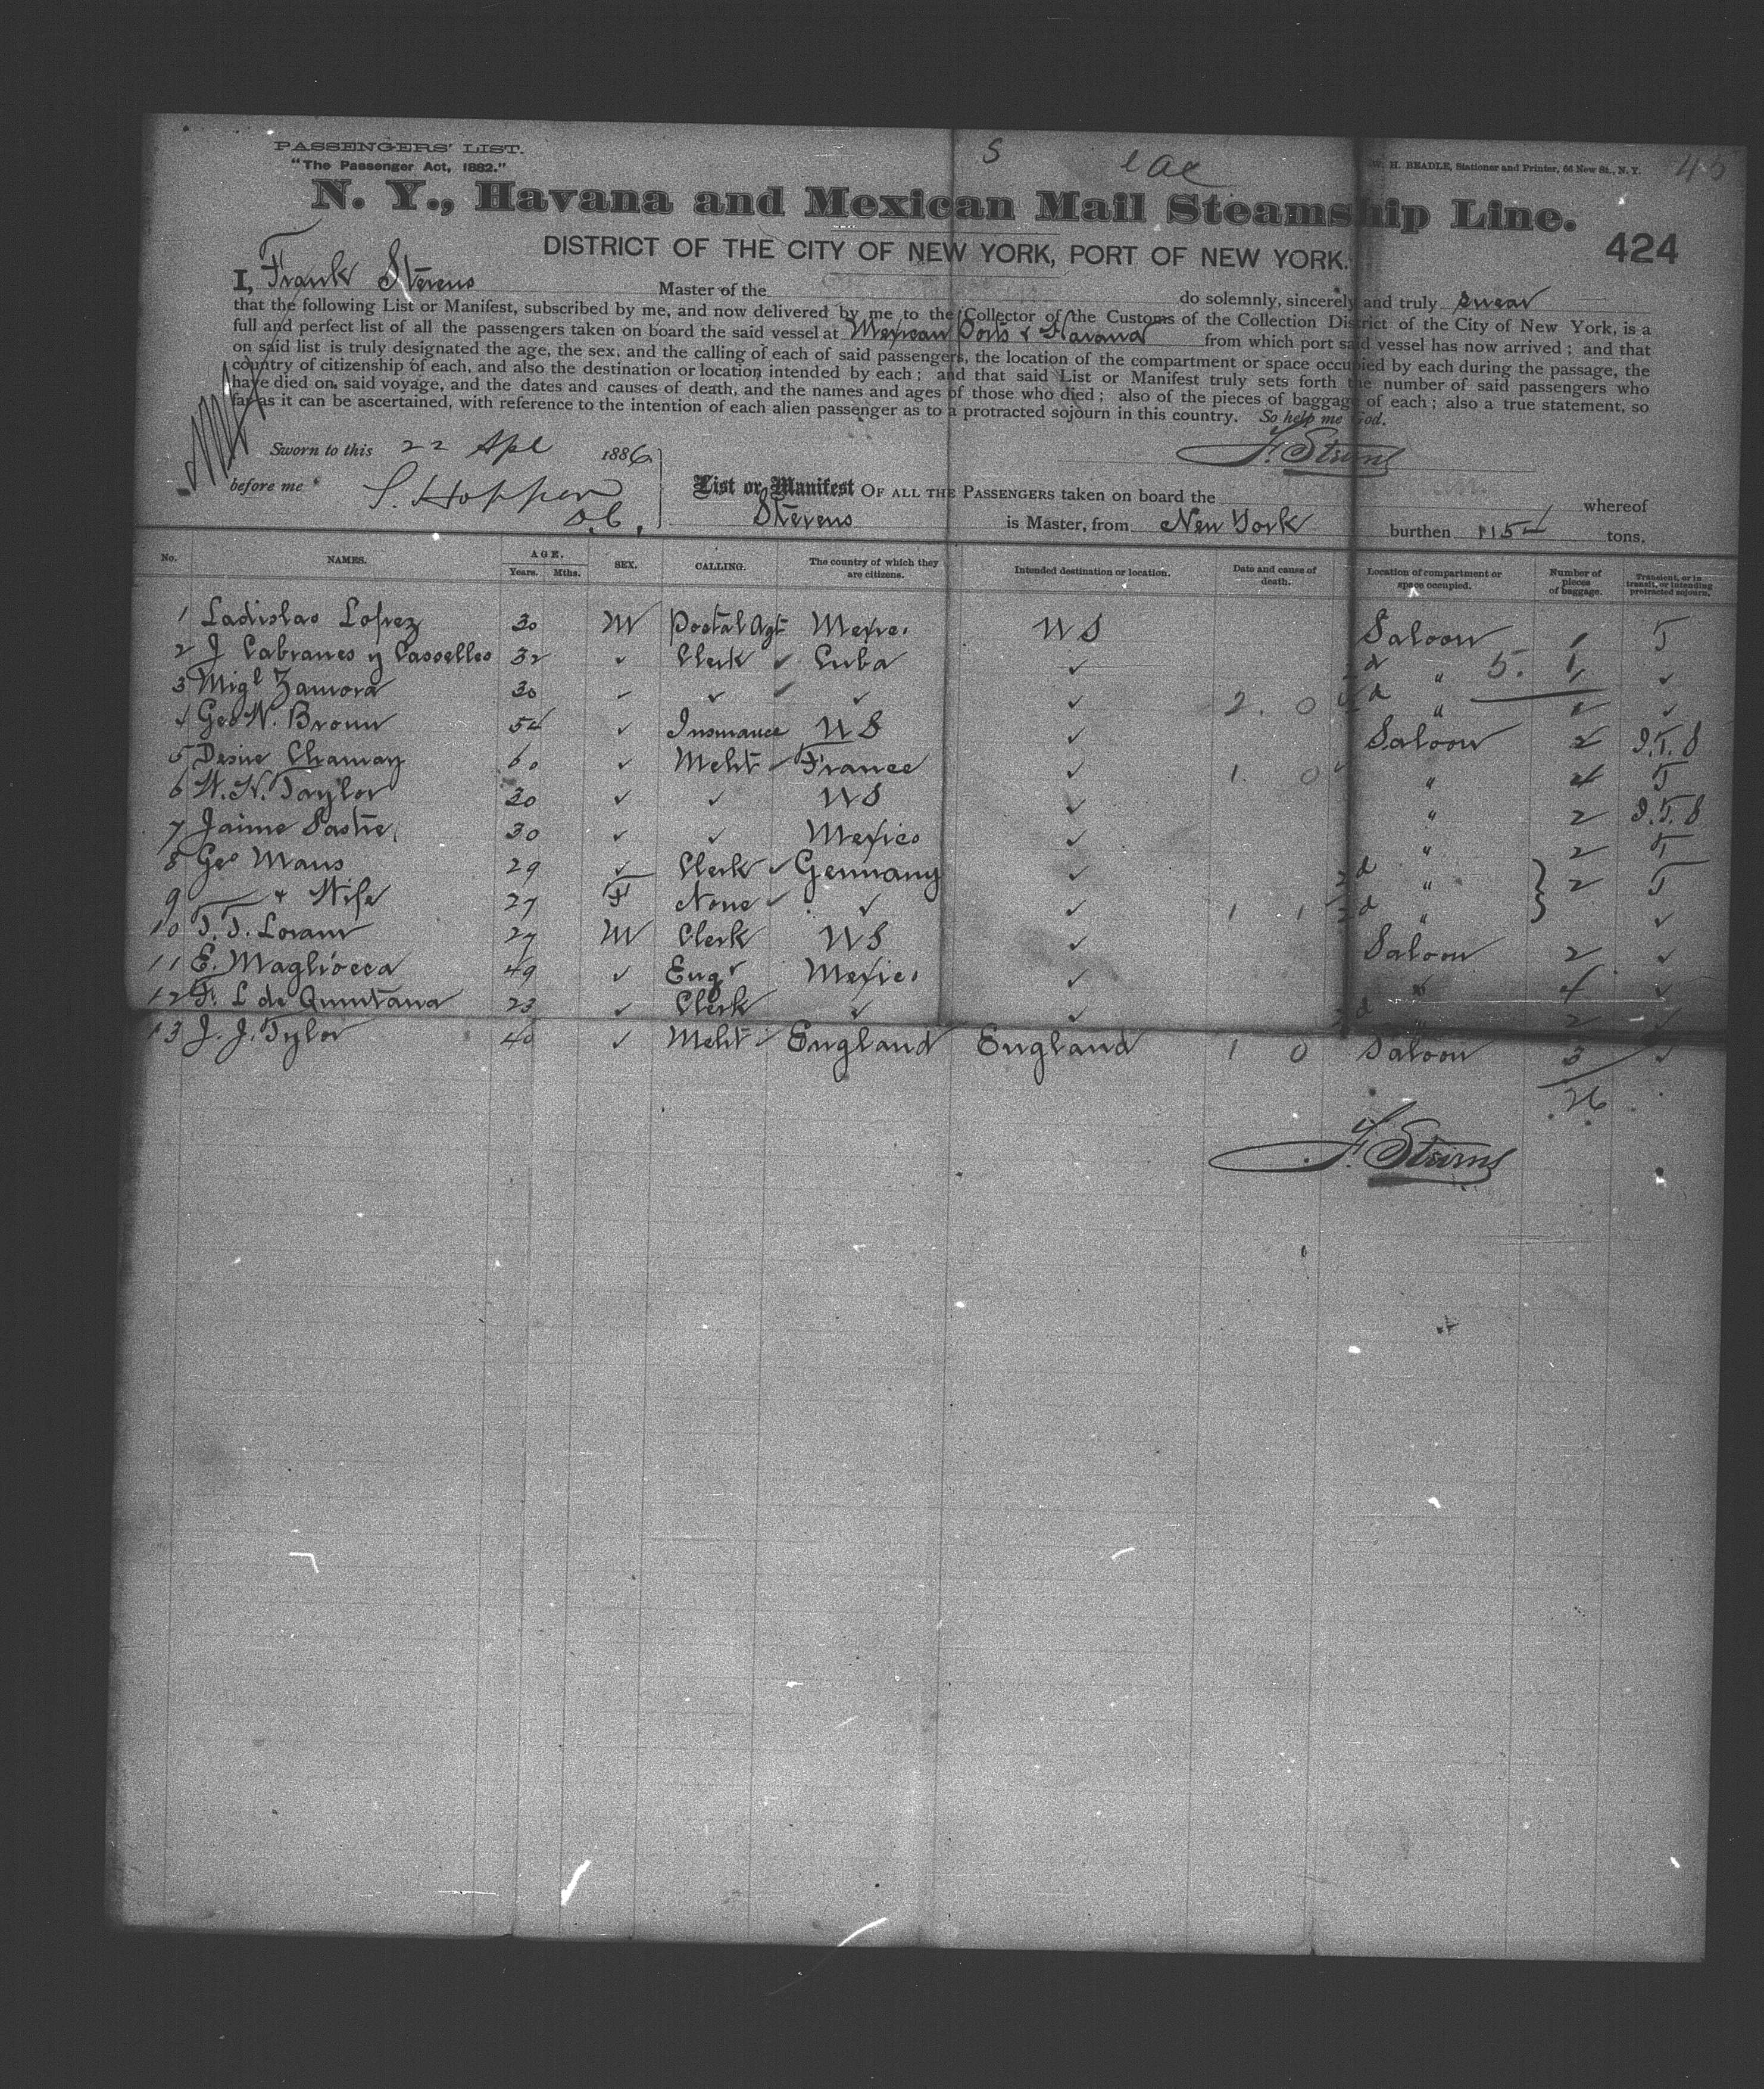 PASSENGERS' LIST.
"The Passenger Act, 1882."
W. H. BEADLE, Stationer and Printer, 66 New St., N. Y.
N. Y., Havana and Mexican Mail Steamship Line.
DISTRICT OF THE CITY OF NEW YORK, PORT OF NEW YORK.
424
I, Frank Stevens Master of the do solemnly, sincerely and truly swear
that the following List or Manifest, subscribed by me, and now delivered by me to the Collector of the Customs of the Collection District of the City of New York, is a
full and perfect list of all the passengers taken on board the said vessel at Mexican Ports & Havana from which port said vessel has now arrived; and that
on said list is truly designated the age, the sex, and the calling of each of said passengers, the location of the compartment or space occupied by each during the passage, the
country of citizenship of each, and also the destination or location intended by each; and that said List or Manifest truly sets forth the number of said passengers who
have died on said voyage, and the dates and causes of death, and the names and ages of those who died; also of the pieces of baggage of each; also a true statement, so
far as it can be ascertained, with reference to the intention of each alien passenger as to a protracted sojourn in this country. So help me God.
F. Stevens
Sworn to this 22 Apl 1886
before me S. Hopper
D.C.
List or Manifest OF ALL THE PASSENGERS taken on board the whereof
Stevens is Master, from New York burthen tons.
No. NAMES. AGE. Years. Mths. SEX. CALLING. The country of which they are citizens. Intended destination or location. Date and cause of death. Location of compartment or space occupied. Number of pieces of baggage. Transient, or in transit, or intending protracted sojourn.
1 Ladislao Lopez 30 M Postal Agt Mexico US Saloon 1 T
2 J Cabranes y Casselles 32 ✓ Clerk ✓ Cuba ✓ 2d " 5. 1 ✓
3 Migl Zamora 30 ✓ ✓ ✓ ✓ 2. 0 2d " 1 ✓
4 Geo W. Brown 54 ✓ Insurance US ✓ Saloon 2 I.T.S
5 Desire Charnay 60 ✓ Mcht ✓ France ✓ 1. 0 " 4 T
6 W. N. Taylor 30 ✓ ✓ US ✓ " 2 I.T.S
7 Jaime Sastre 30 ✓ ✓ Mexico ✓ " 2 T
8 Geo Maus 29 ✓ Clerk ✓ Germany ✓ 2d " } 2 T
9 — & Wife 27 F None ✓ ✓ ✓ 1 1 2d " ✓
10 T. T. 27 M Clerk US ✓ Saloon 2 ✓
11 E. Magliocca 49 ✓ Engr Mexico ✓ " 4 ✓
12 F. L de Quintana 23 ✓ Clerk ✓ ✓ 2d " 2 ✓
13 J. J. Tylor 40 ✓ Mcht ✓ England England 1 0 Saloon 3 ✓
26
F. Stevens